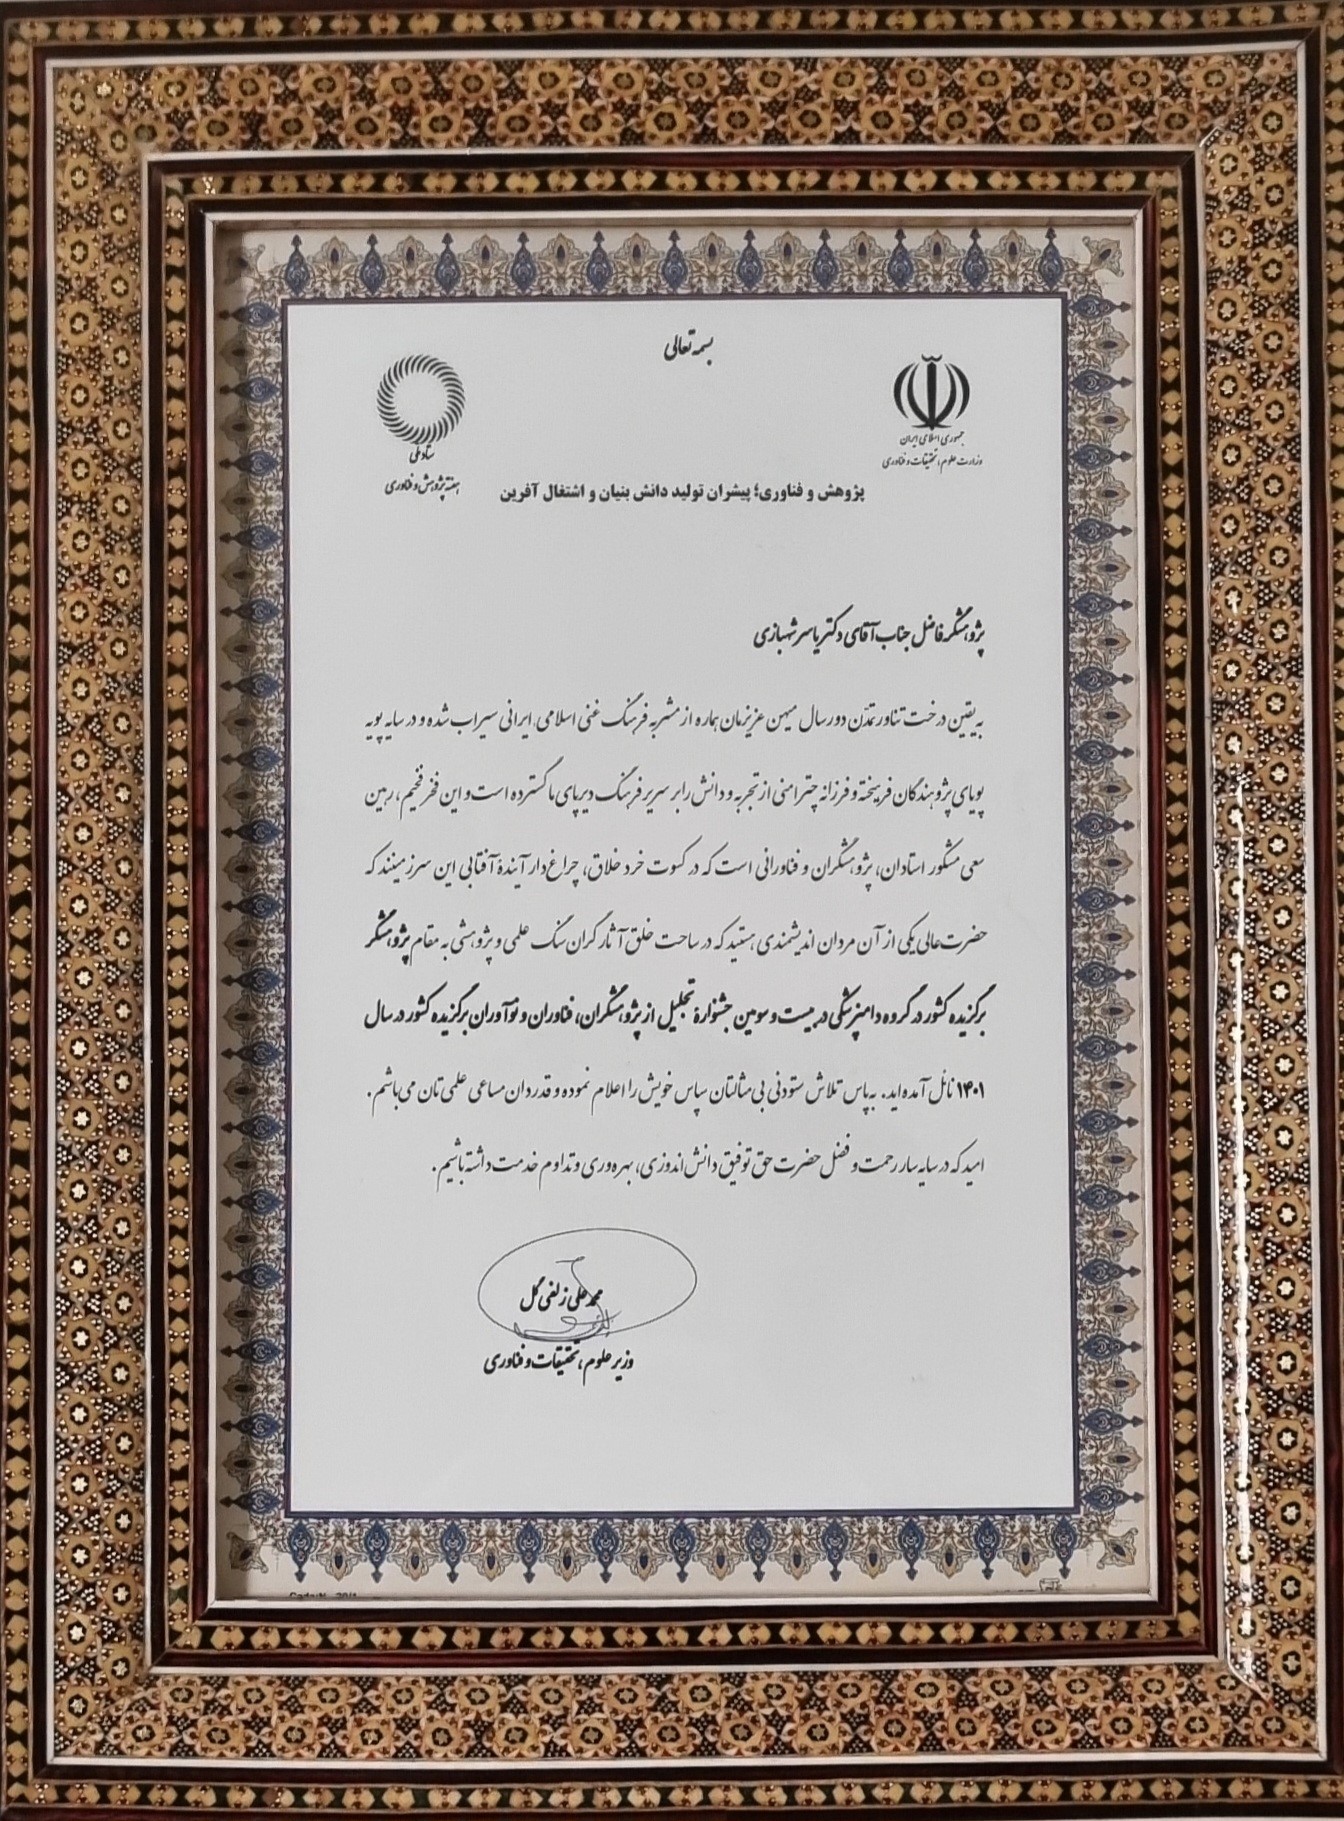 بسمه تعالی
جمهوری اسلامی ایران
وزارت علوم، تحقیقات و فناوری
ستاد ملی
هفته پژوهش و فناوری
پژوهش و فناوری؛ پیشران تولید دانش بنیان و اشتغال آفرین
پژوهشگر فاضل جناب آقای دکتر یاسر شهبازی
به یقین درخت تناور تمدّن دور سال میهن عزیزمان هماره از مشربه فرهنگ غنی اسلامی، ایرانی سیراب شده و در سایه پویه
پویای پژوهندگان فرهیخته و فرزانه چتر امنی از تجربه و دانش را بر سریر فرهنگ دیرپای ما گسترده است و این فخر فخیم، رهین
سعی مشکور استادان، پژوهشگران و فناورانی است که در کسوت خرد خلاق، چراغ‌دار آیندهٔ آفتابی این سرزمینند که
حضرت‌عالی یکی از آن مردان اندیشمندی هستید که در ساحت خلق آثار گران سنگ علمی و پژوهشی به مقام پژوهشگر
برگزیده کشور در گروه دامپزشکی در بیست و سومین جشنوارهٔ تجلیل از پژوهشگران، فناوران و نوآوران برگزیده کشور در سال
۱۴۰۱ نائل آمده‌اید. به پاس تلاش ستودنی بی مثالتان سپاس خویش را اعلام نموده و قدردان مساعی علمی تان می باشم.
امید که در سایه سار رحمت و فضل حضرت حق توفیق دانش اندوزی، بهره‌وری و تداوم خدمت داشته باشیم.
محمد علی زلفی گل
وزیر علوم، تحقیقات و فناوری